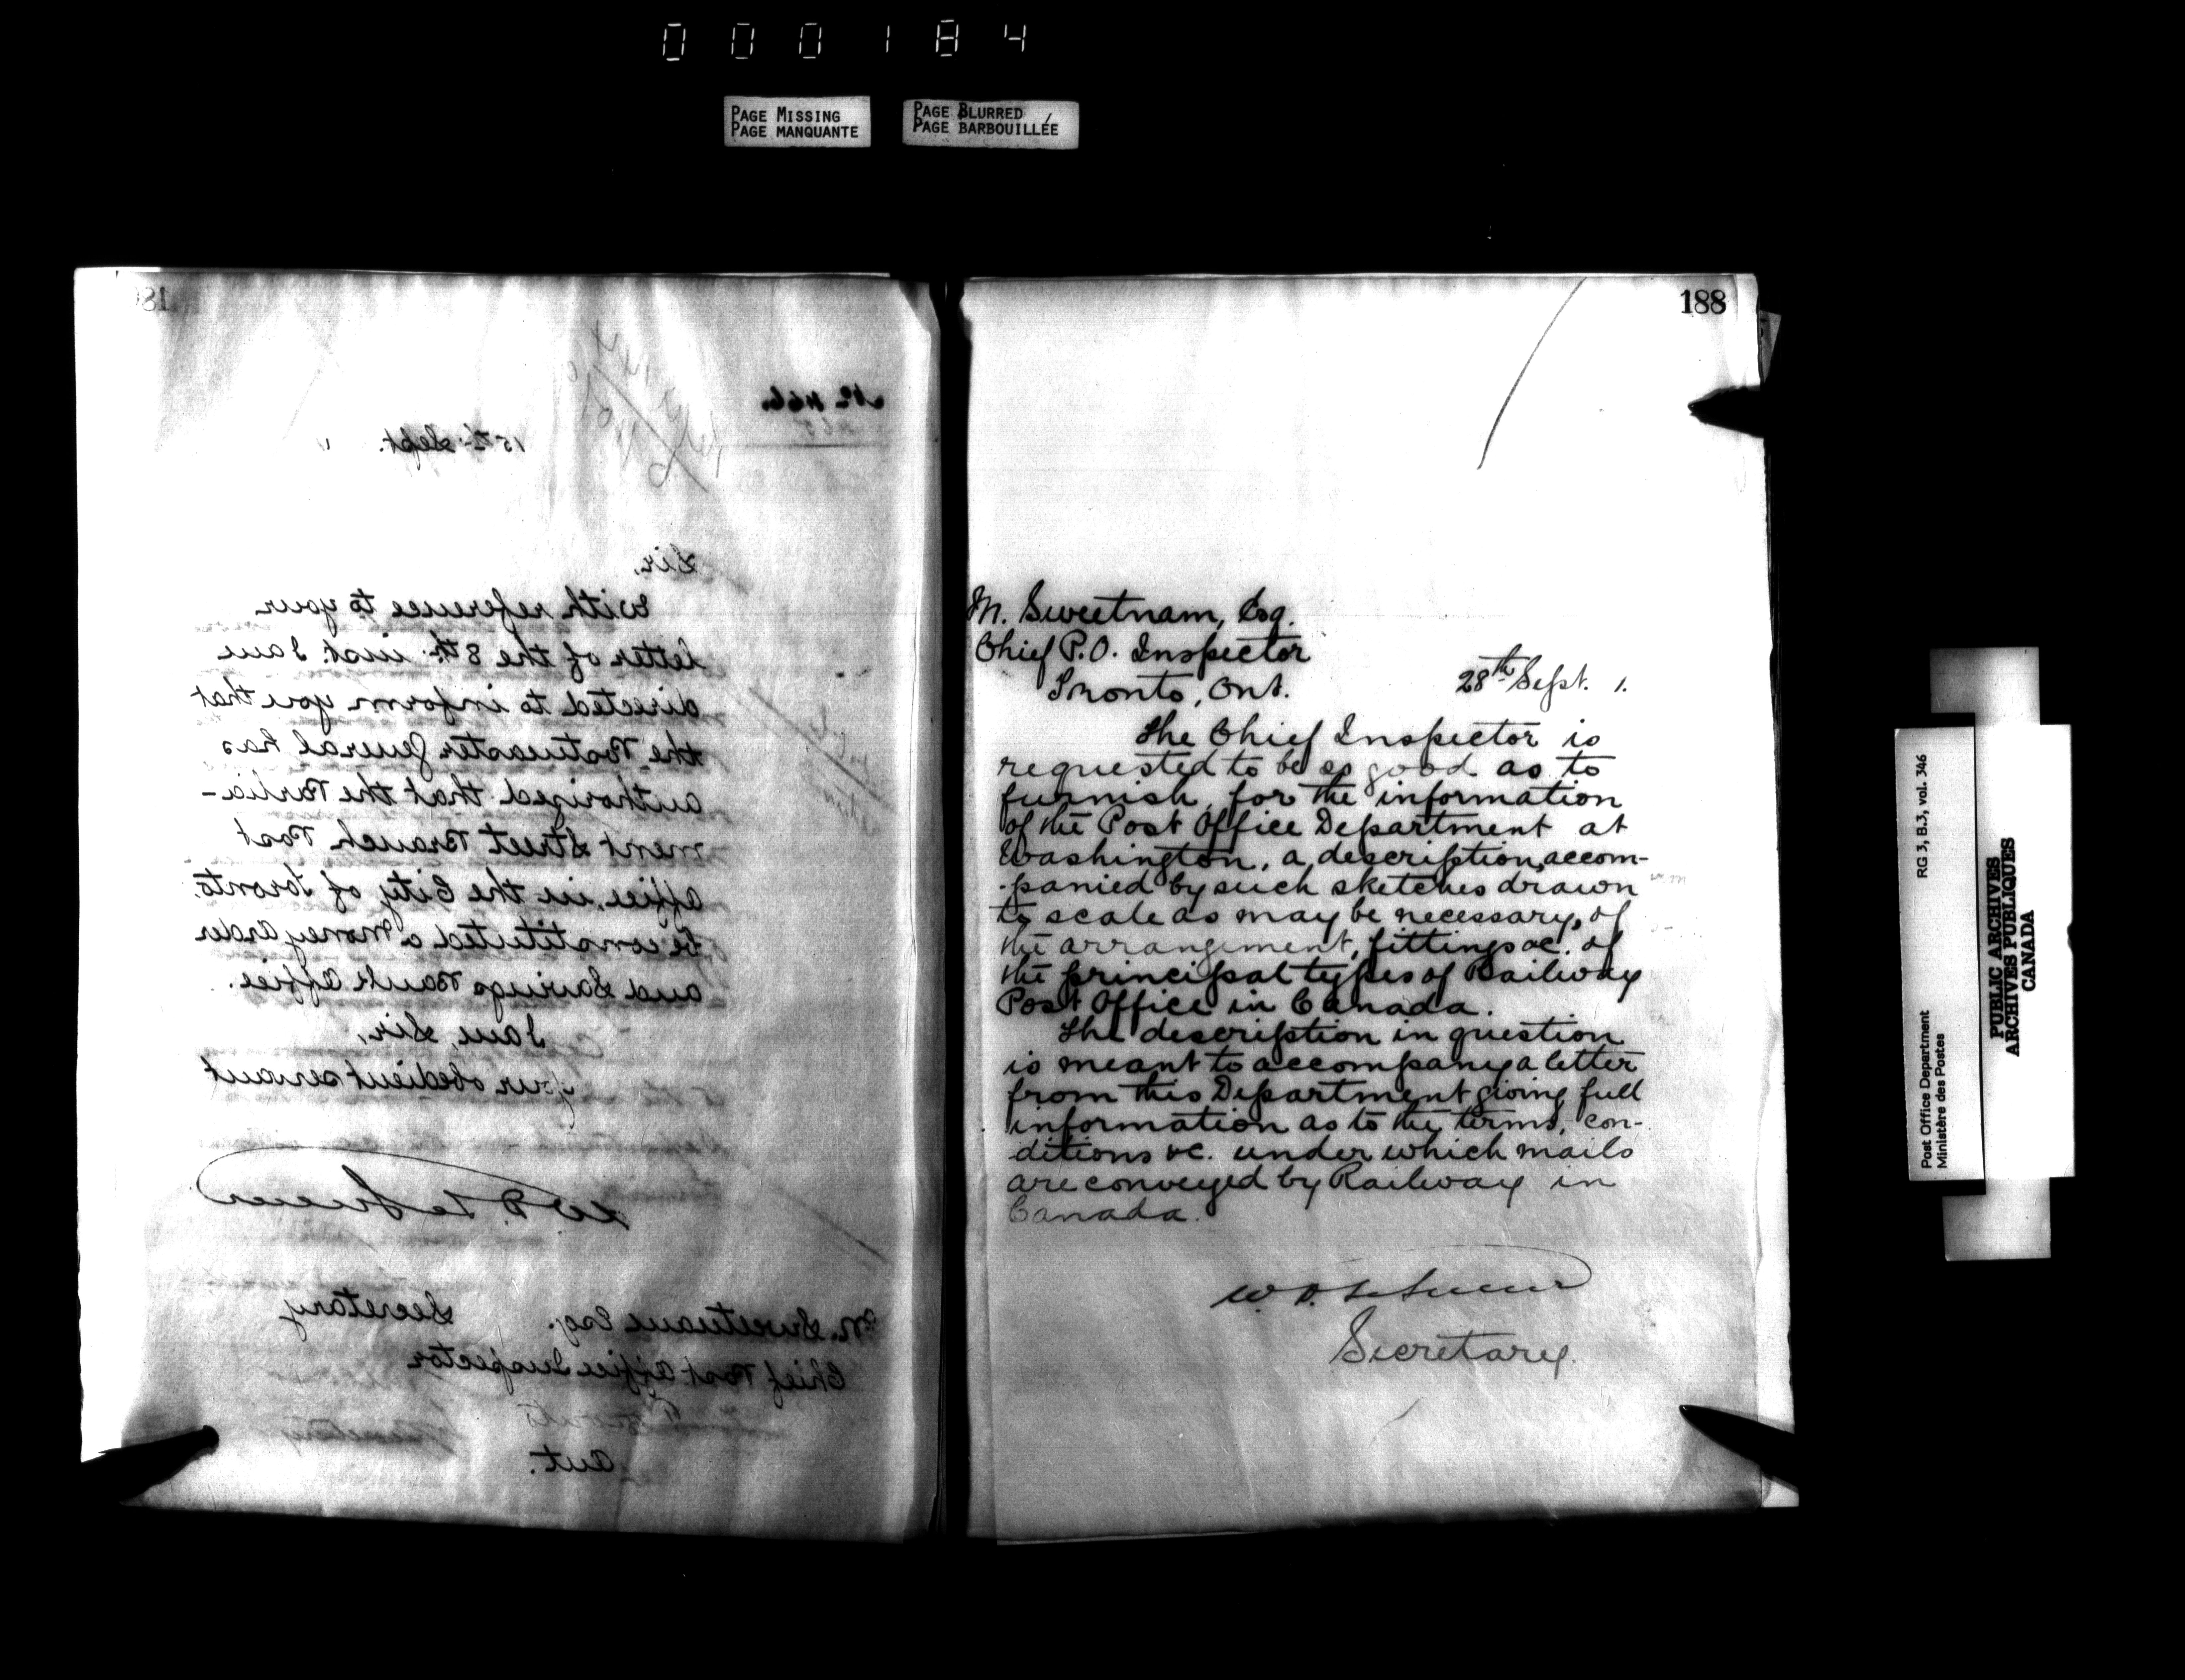 000184
PAGE MISSING
PAGE MANQUANTE
PAGE BLURRED
PAGE BARBOUILLÉE
No 466.
15th Sept.
Sir,
With reference to your
letter of the 8th inst. I am
directed to inform you that
the Postmaster General has
authorized that the Parlia-
ment Street Branch Post
Office, in the City of Toronto,
be constituted a Money Order
and Savings Bank Office.
I am, Sir,
Your obedient servant
W. D. LeSueur
Secretary
M. Sweetnam Esq.
Chief Post Office Inspector
Toronto
Ont.
188
M. Sweetnam, Esq.
Chief P.O. Inspector
Toronto, Ont.
28th Sept. 1.
The Chief Inspector is
requested to be so good as to
furnish, for the information
of the Post Office Department at
Washington, a description, accom-
-panied by such sketches drawn
to scale as may be necessary, of
the arrangement, fittings &c. of
the principal types of Railway
Post Office in Canada.
The description in question
is meant to accompany a letter
from this Department giving full
information as to the terms, con-
ditions &c. under which mails
are conveyed by Railway in
Canada.
W. D. LeSueur
Secretary.
Post Office Department
Ministère des Postes
RG 3, B.3, vol. 346
PUBLIC ARCHIVES
ARCHIVES PUBLIQUES
CANADA